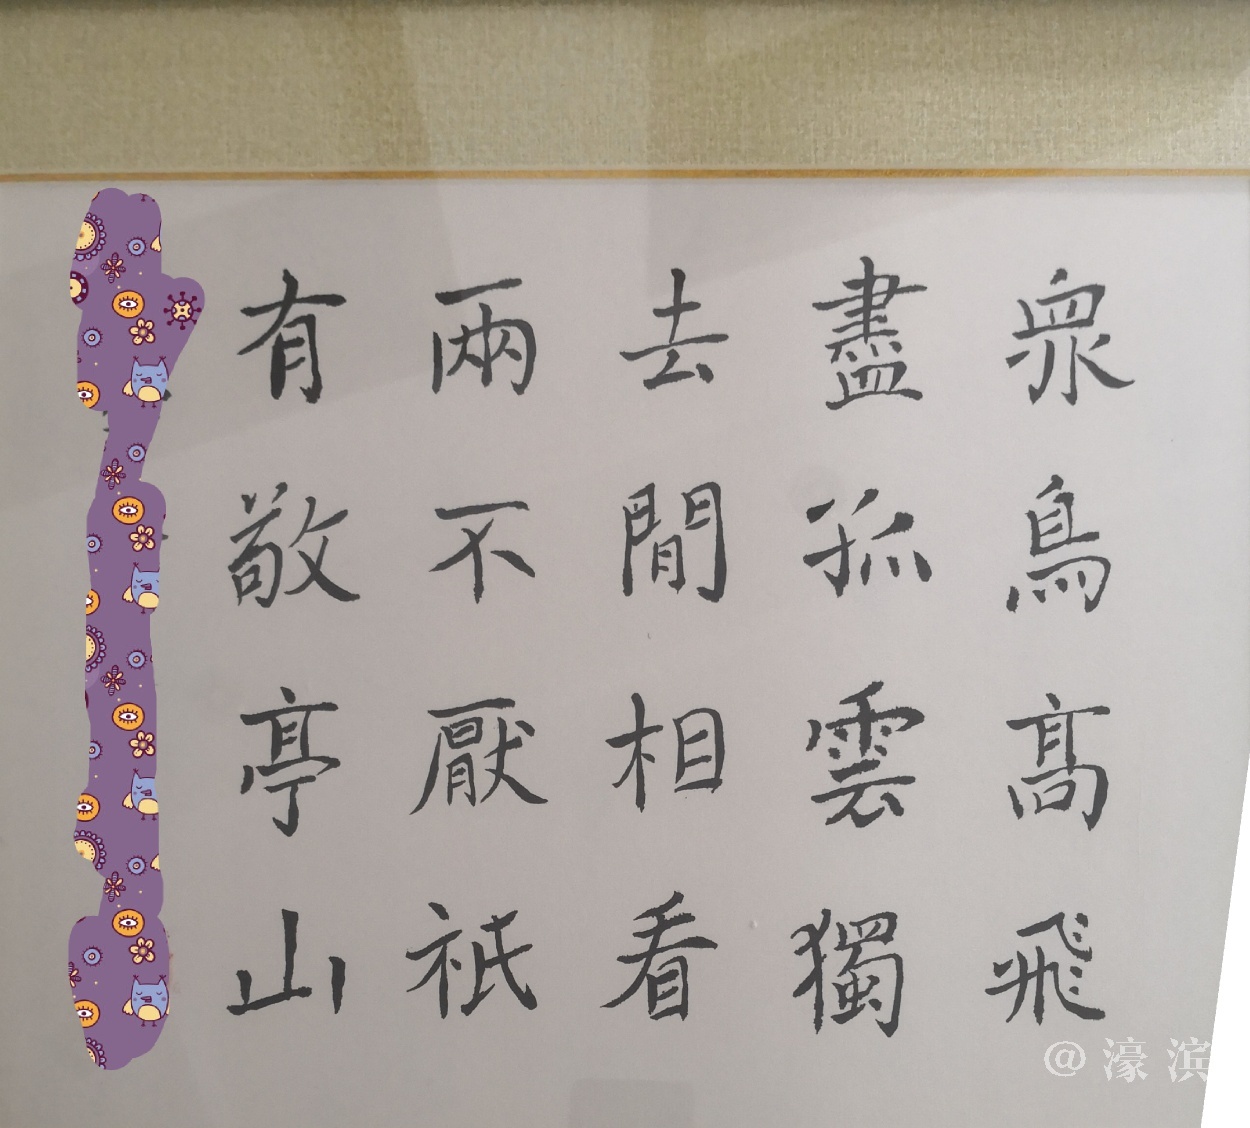 衆鳥高飛
盡孤雲獨
去閒相看
兩不厭祇
有敬亭山
@濠滨